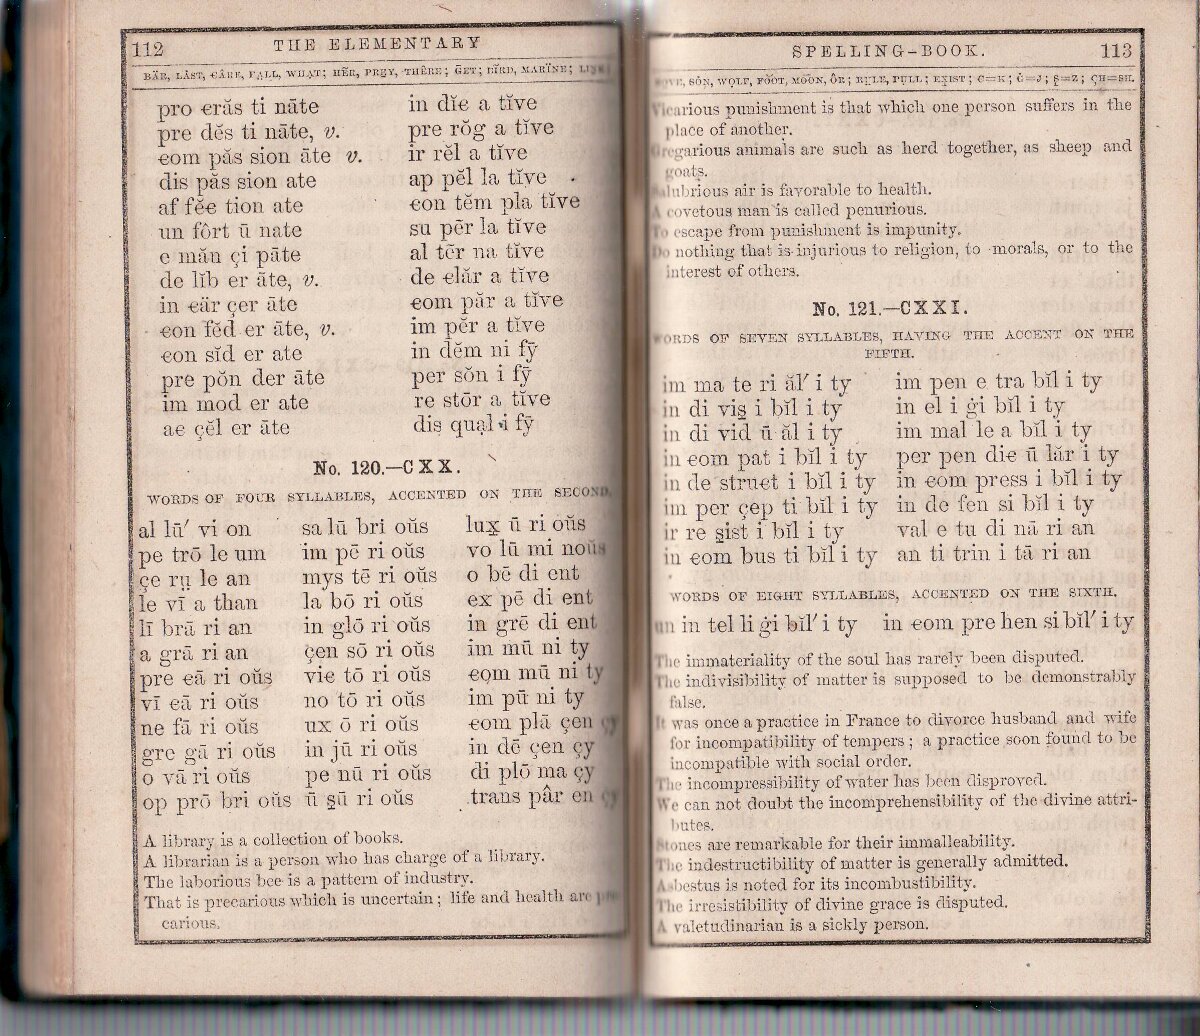 112 THE ELEMENTARY
BÄR, LÀST, CÂRE, FALL, WHAT; HËR, PREY, THÊRE; ḠET; BÏRD, MARÏNE;
pro erăs ti nāte
pre dĕs ti nāte, v.
com păs sion āte v.
dis păs sion ate
af fĕc tion ate
un fôrt ū nate
e măn çi pāte
de lĭb er āte, v.
in cär çer āte
con fĕd er āte, v.
con sĭd er ate
pre pŏn der āte
im mod er ate
ac çĕl er āte
in dĭc a tĭve
pre rŏg a tĭve
ir rĕl a tĭve
ap pĕl la tĭve
con tĕm pla tĭve
su pēr la tĭve
al tēr na tĭve
de clăr a tĭve
com păr a tĭve
im pĕr a tĭve
in dĕm ni fȳ
per sŏn i fȳ
re stōr a tĭve
dis qual i fȳ
No. 120.—CXX.
WORDS OF FOUR SYLLABLES, ACCENTED ON THE SECOND.
al lū′ vi on
pe trō le um
çe ru̱ le an
le vī a than
lī brā ri an
a grā ri an
pre cā ri oŭs
vī cā ri oŭs
ne fā ri oŭs
gre gā ri oŭs
o vā ri oŭs
op prō bri oŭs
sa lū bri oŭs
im pē ri oŭs
mys tē ri oŭs
la bō ri oŭs
in glō ri oŭs
çen sō ri oŭs
vic tō ri oŭs
no tō ri oŭs
ux ō ri oŭs
in jū ri oŭs
pe nū ri oŭs
ū s̱ū ri oŭs
lux̱ ū ri oŭs
vo lū mi noŭs
o bē di ent
ex pē di ent
in grē di ent
im mū ni ty
com mū ni ty
im pū ni ty
com plā çen çy
in dē çen çy
di plō ma çy
trans pâr en çy
A library is a collection of books.
A librarian is a person who has charge of a library.
The laborious bee is a pattern of industry.
That is precarious which is uncertain; life and health are pre-
carious.
SPELLING-BOOK. 113
SȮN, WO̱LF, FO͝OT, MO͞ON, ÔR; RU̱LE, PU̱LL; EX̱IST; C=K; Ġ=J; S̱=Z; ÇH=SH.
Vicarious punishment is that which one person suffers in the
place of another.
Gregarious animals are such as herd together, as sheep and
goats.
Salubrious air is favorable to health.
A covetous man is called penurious.
To escape from punishment is impunity.
Do nothing that is injurious to religion, to morals, or to the
interest of others.
No. 121.—CXXI.
WORDS OF SEVEN SYLLABLES, HAVING THE ACCENT ON THE
FIFTH.
im ma te ri ăl′ i ty
in di vis̱ i bĭl i ty
in di vid ū ăl i ty
in com pat i bĭl i ty
in de struct i bĭl i ty
im per çep ti bĭl i ty
ir re s̱ist i bĭl i ty
in com bus ti bĭl i ty
im pen e tra bĭl i ty
in el i ġi bĭl i ty
im mal le a bĭl i ty
per pen dic ū lăr i ty
in com press i bĭl i ty
in de fen si bĭl i ty
val e tu di nā ri an
an ti trin i tā ri an
WORDS OF EIGHT SYLLABLES, ACCENTED ON THE SIXTH.
un in tel li ġi bĭl′ i ty in com pre hen si bĭl′ i ty
The immateriality of the soul has rarely been disputed.
The indivisibility of matter is supposed to be demonstrably
false.
It was once a practice in France to divorce husband and wife
for incompatibility of tempers; a practice soon found to be
incompatible with social order.
The incompressibility of water has been disproved.
We can not doubt the incomprehensibility of the divine attri-
butes.
Stones are remarkable for their immalleability.
The indestructibility of matter is generally admitted.
Asbestus is noted for its incombustibility.
The irresistibility of divine grace is disputed.
A valetudinarian is a sickly person.